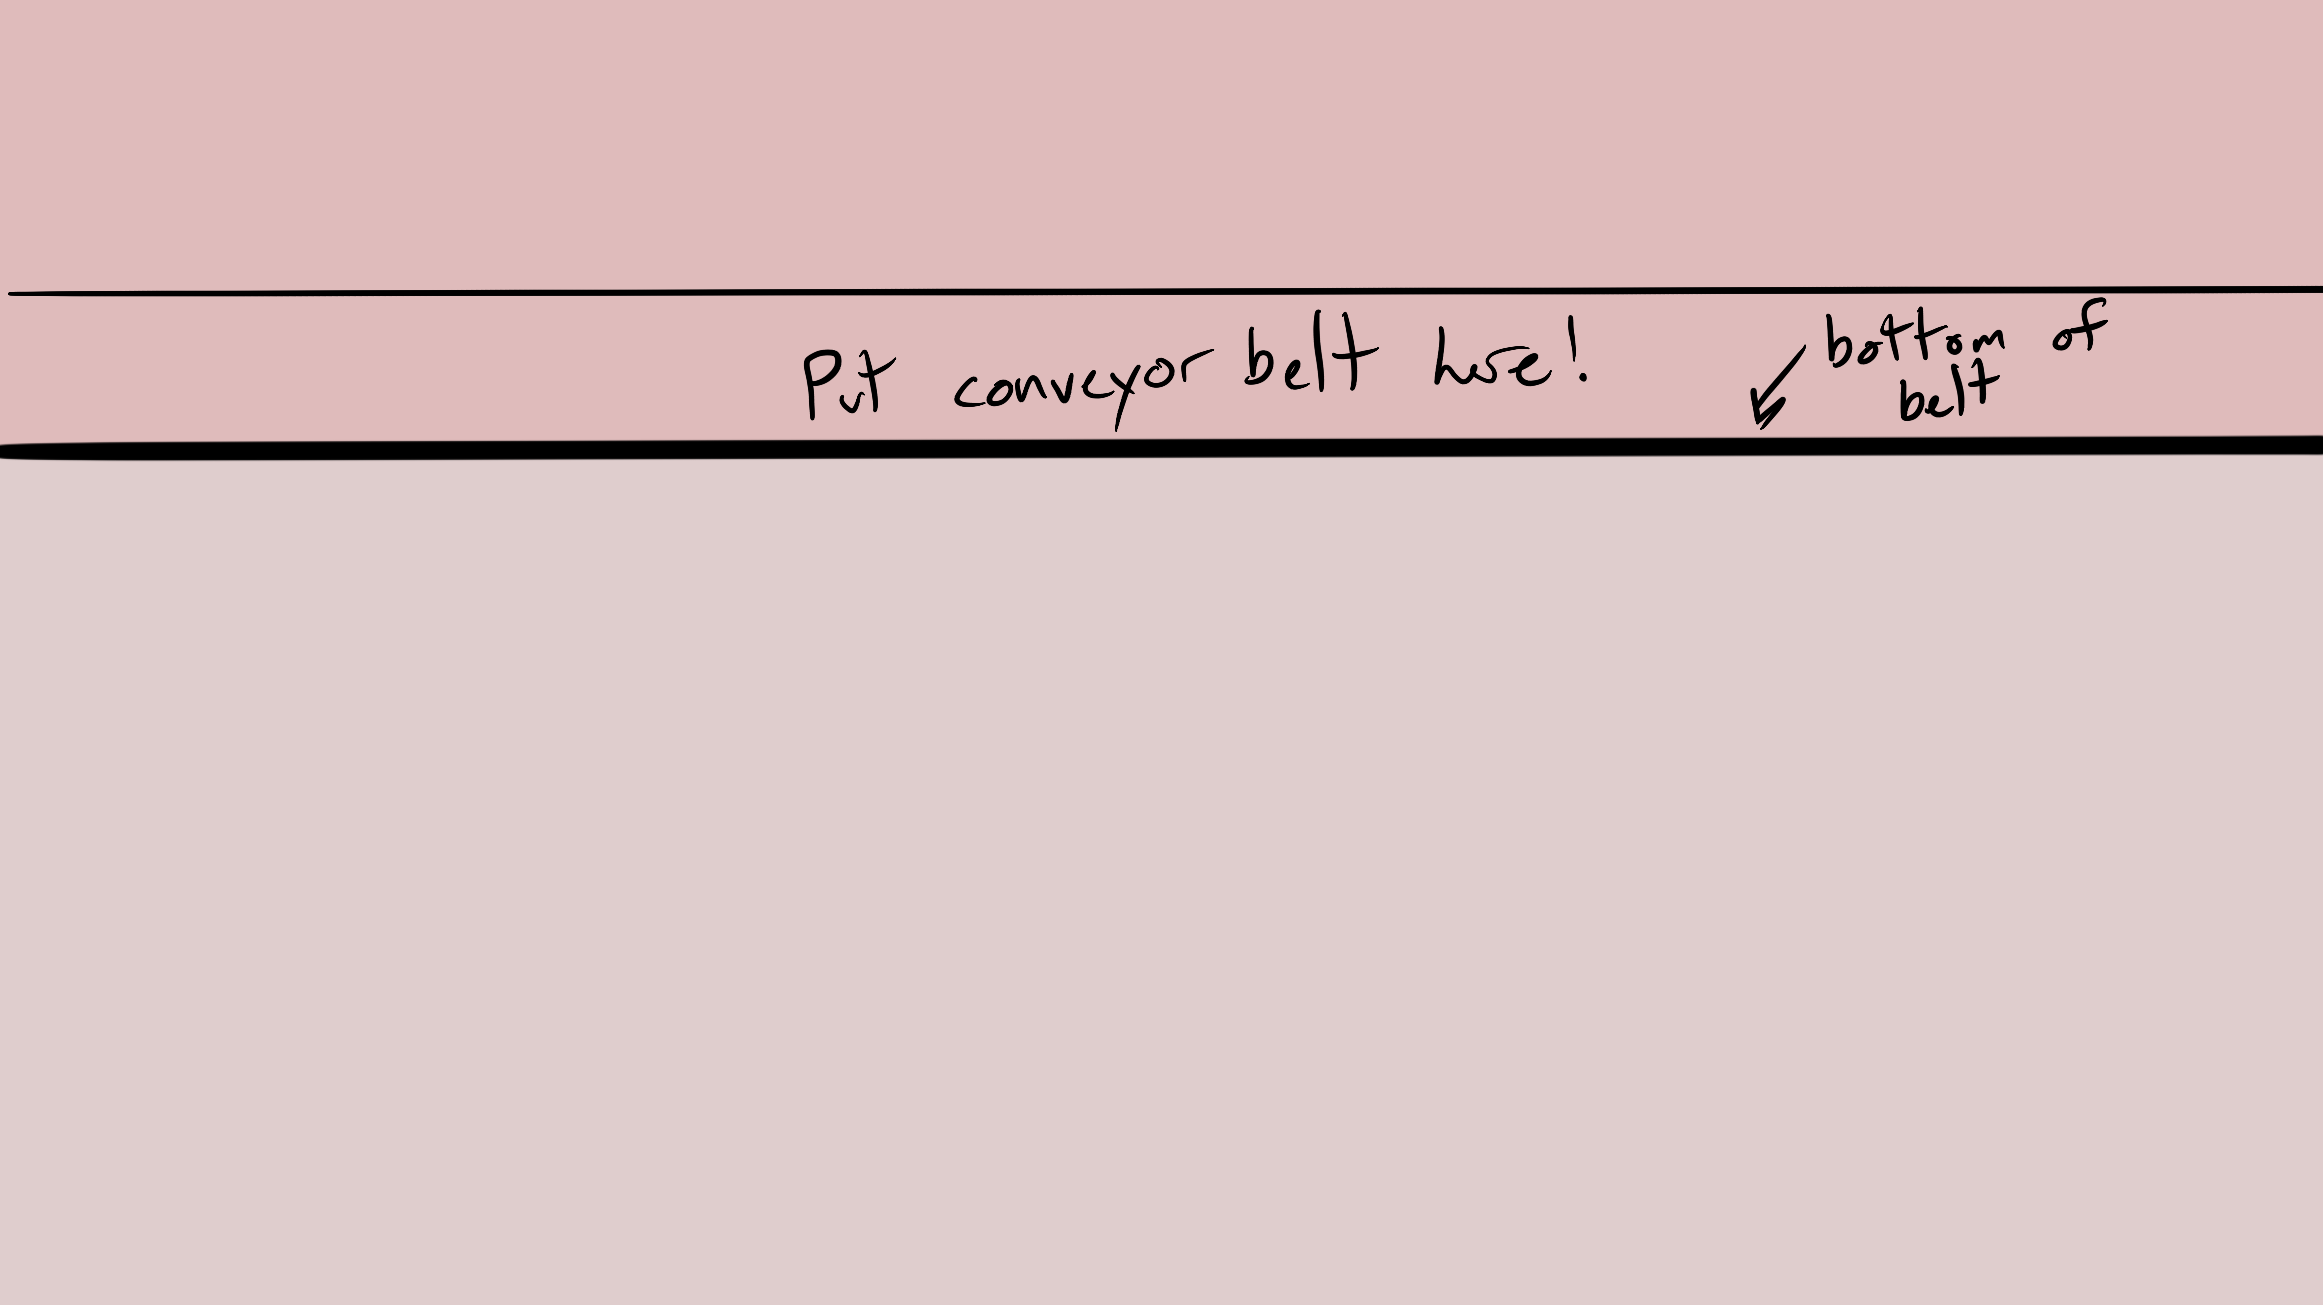 Put conveyor belt here!
bottom of
belt